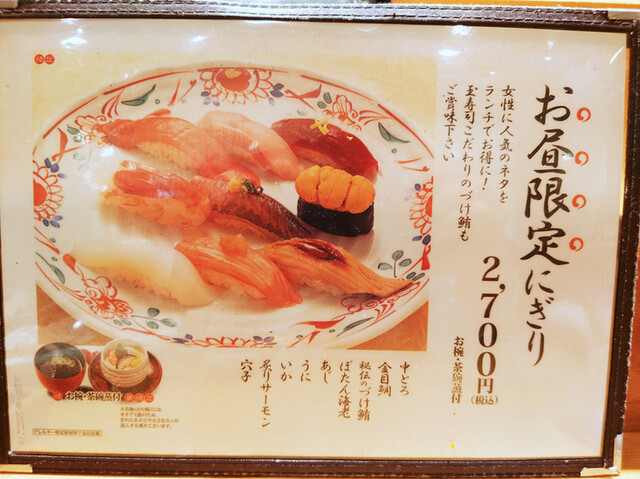 お昼限定にぎり
2,700円(税込)
お椀・茶碗蒸付
女性に人気のネタを
ランチでお得に！
玉寿司こだわりのづけ鮪も
ご賞味下さい
中とろ
金目鯛
秘伝のづけ鮪
ぼたん海老
あじ
うに
いか
炙りサーモン
穴子
お椀・茶碗蒸付